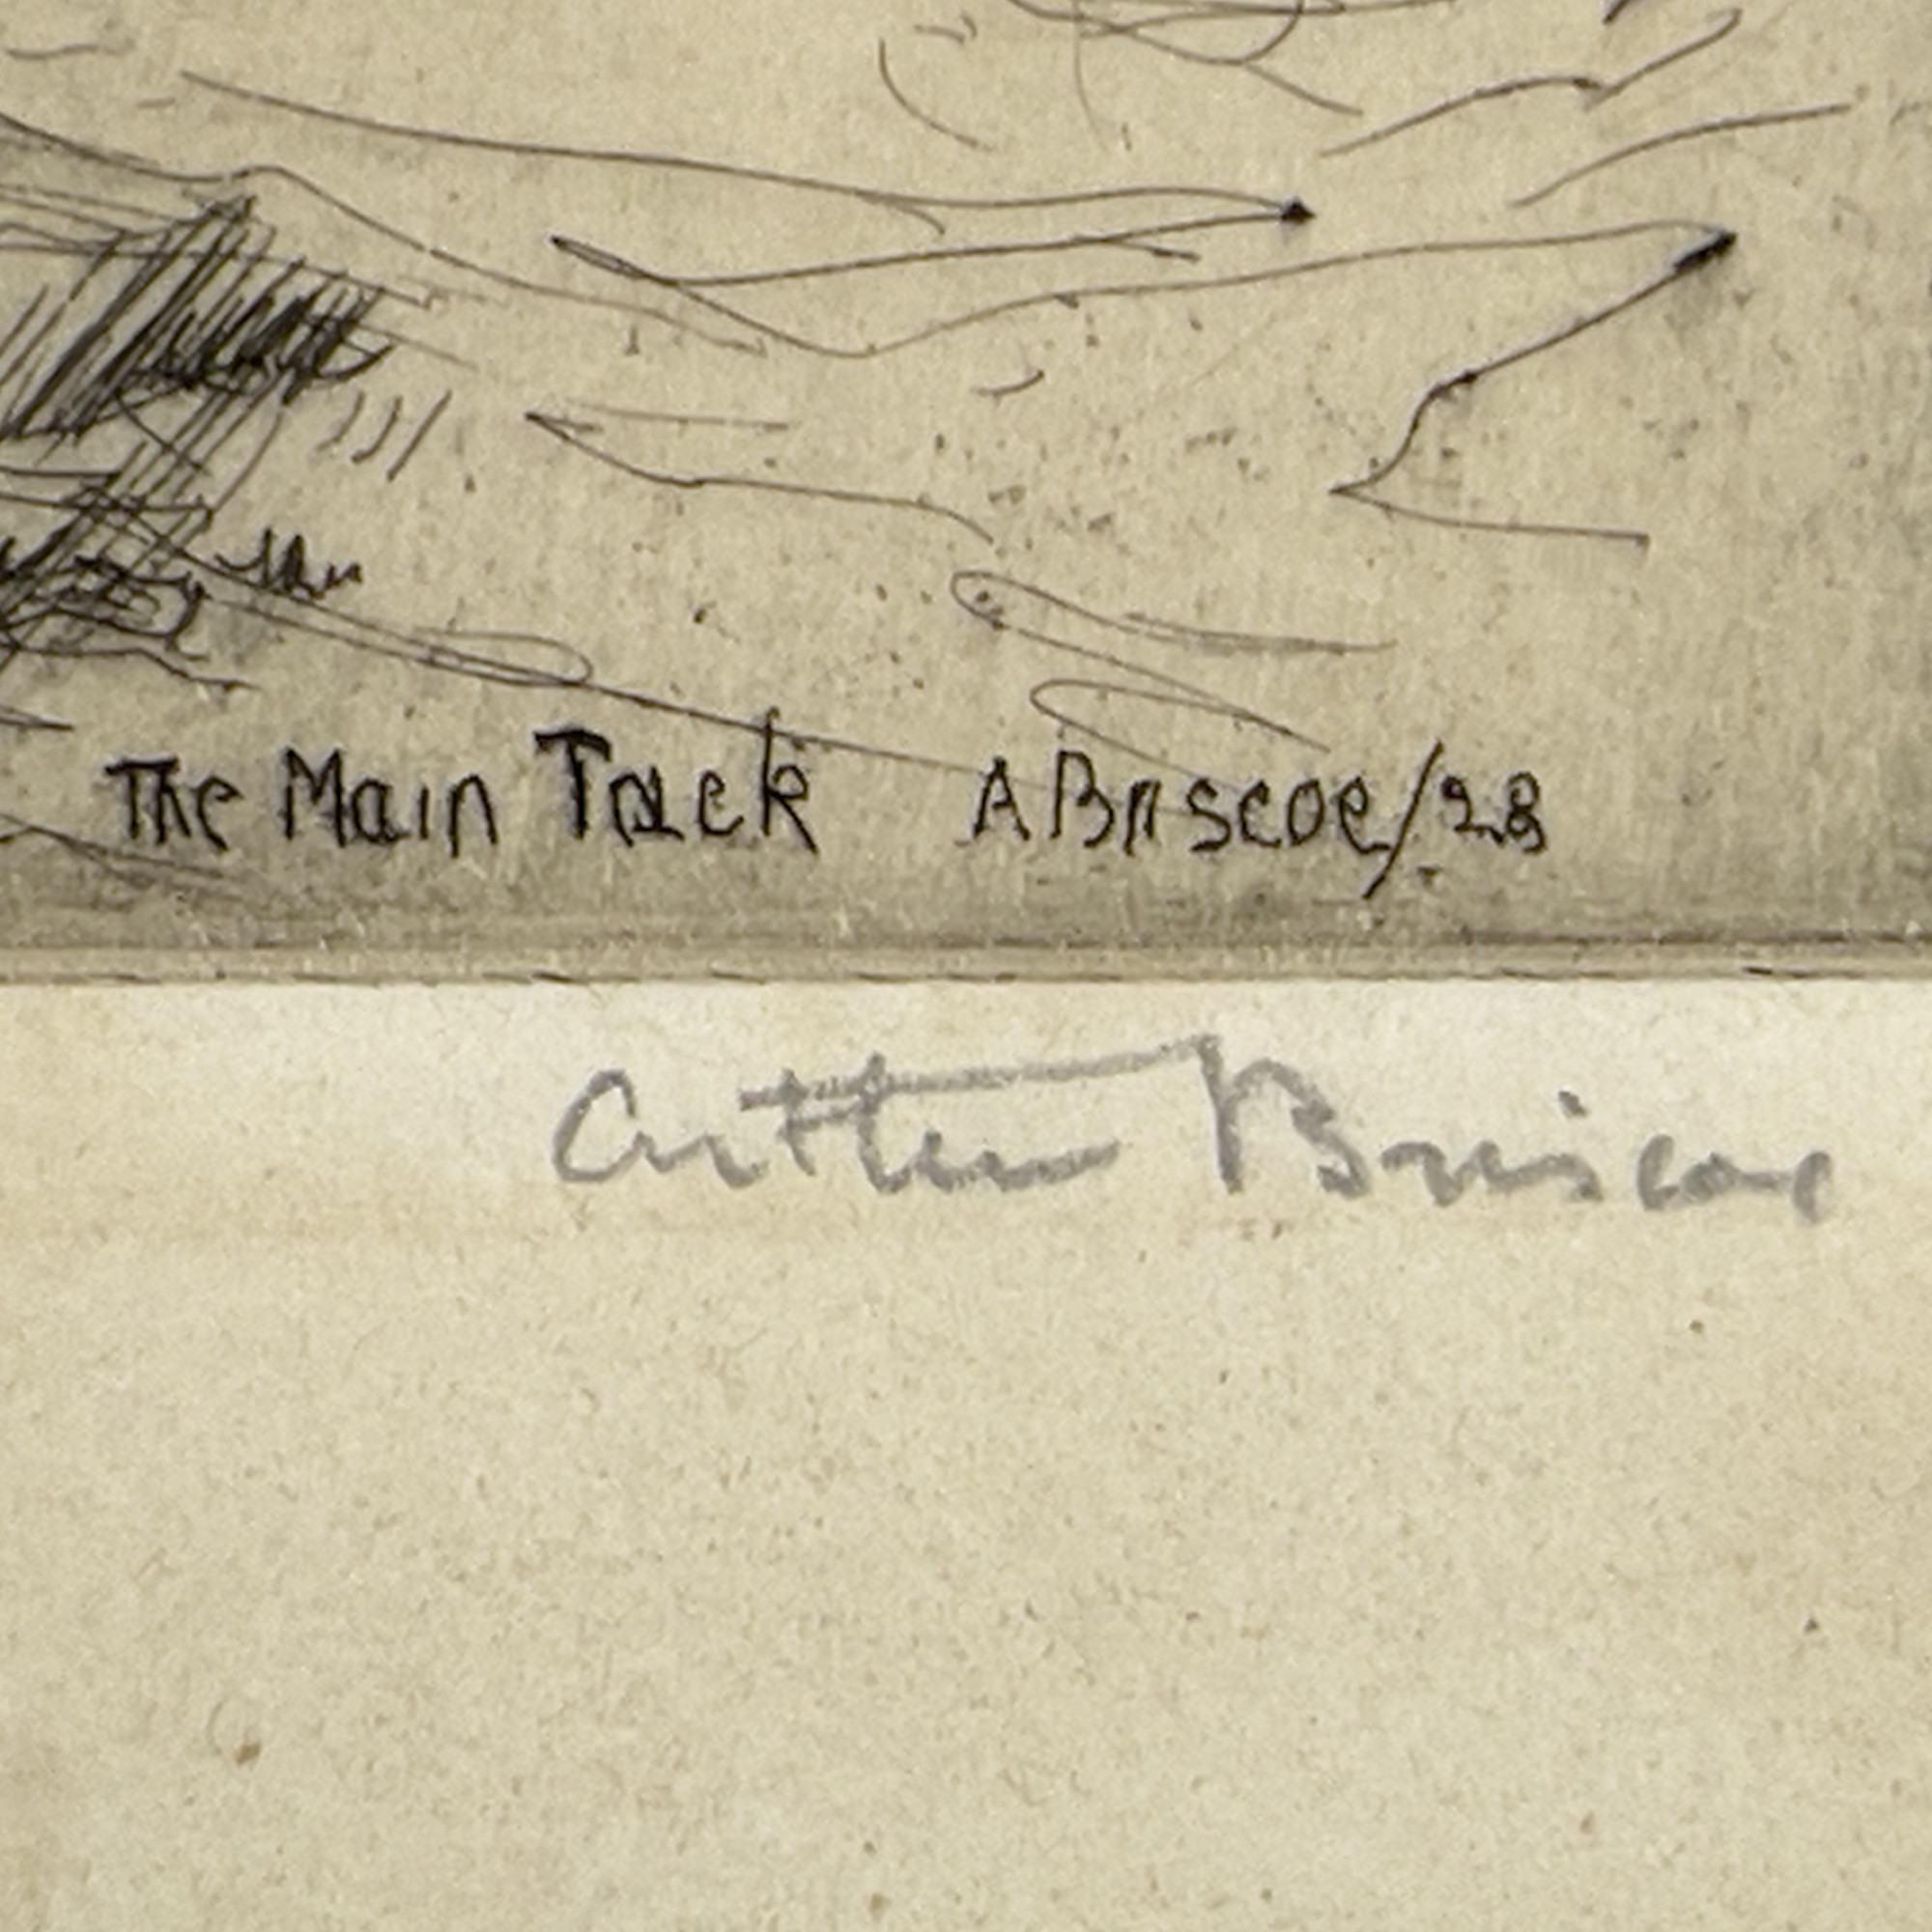 The Main Tack ABriscoe/28
Arthur Briscoe